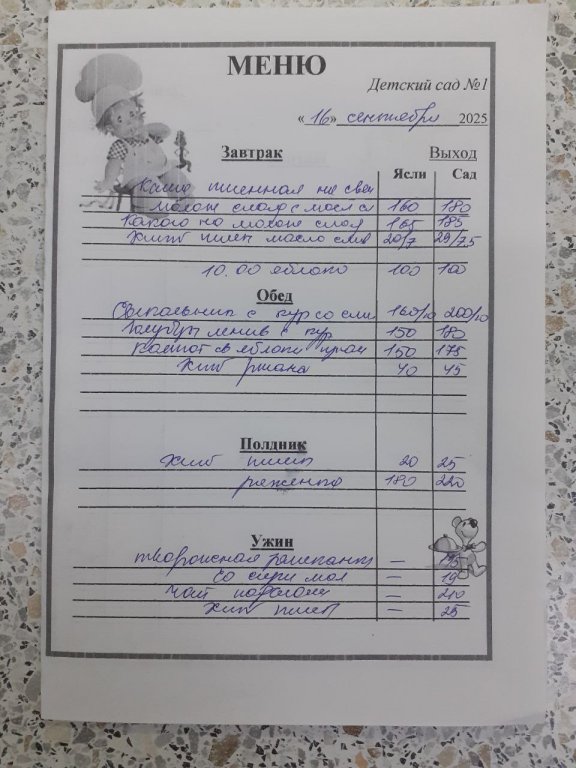 МЕНЮ
Детский сад №1
«16» сентября 2025
Завтрак Выход
Ясли Сад
Каша пшенная на свеж
молоке слад с масл сл 160 180
Какао на молоке слад 165 185
Хлеб пшен масло слив 20/7 29/7,5
10.00 яблоко 100 100
Обед
Свекольник с кур со см 160/10 200/10
Голубцы ленив с кур 150 180
Компот св яблоки 150 175
Хлеб ржано 40 45
Полдник
Хлеб пшен 20 25
ряженка 180 220
Ужин
творожная запеканк — 195
со сгущ мол — 19
Чай — 210
Хлеб пшен — 25